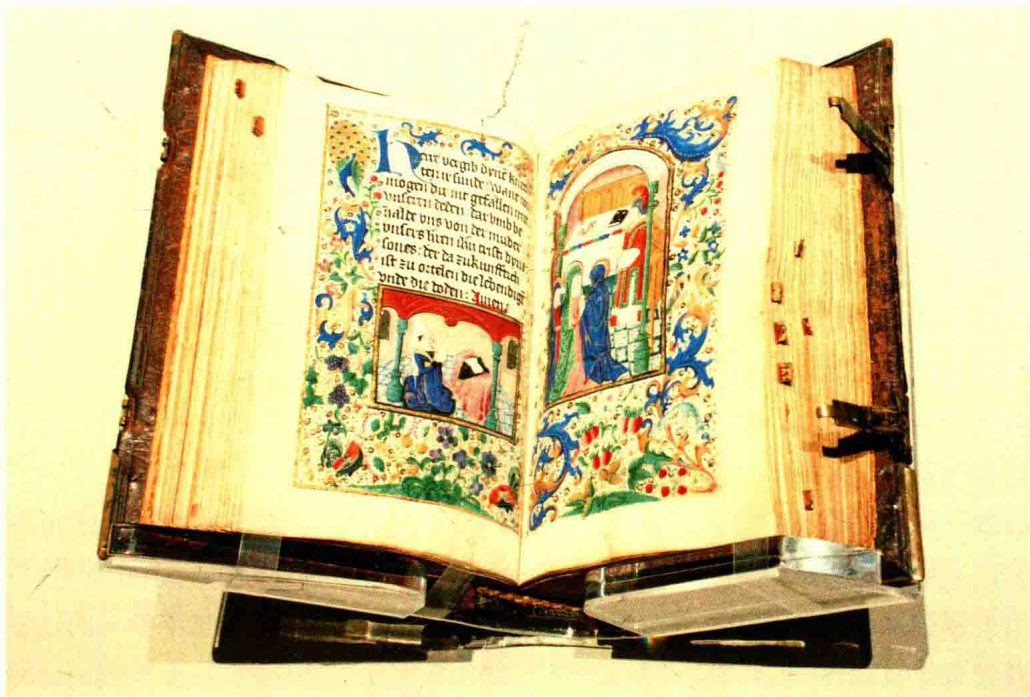 Herr vergib dyne knech
ten ir sunde · Want wir
mogen dir nit gefallen mit
unseren deden Dar umb be
halde uns von der muder
unsers hren ihu cristi dyns
sones · der da zukunfftich
ist zu ortelen die lebendige
unde die doden : Amen ·